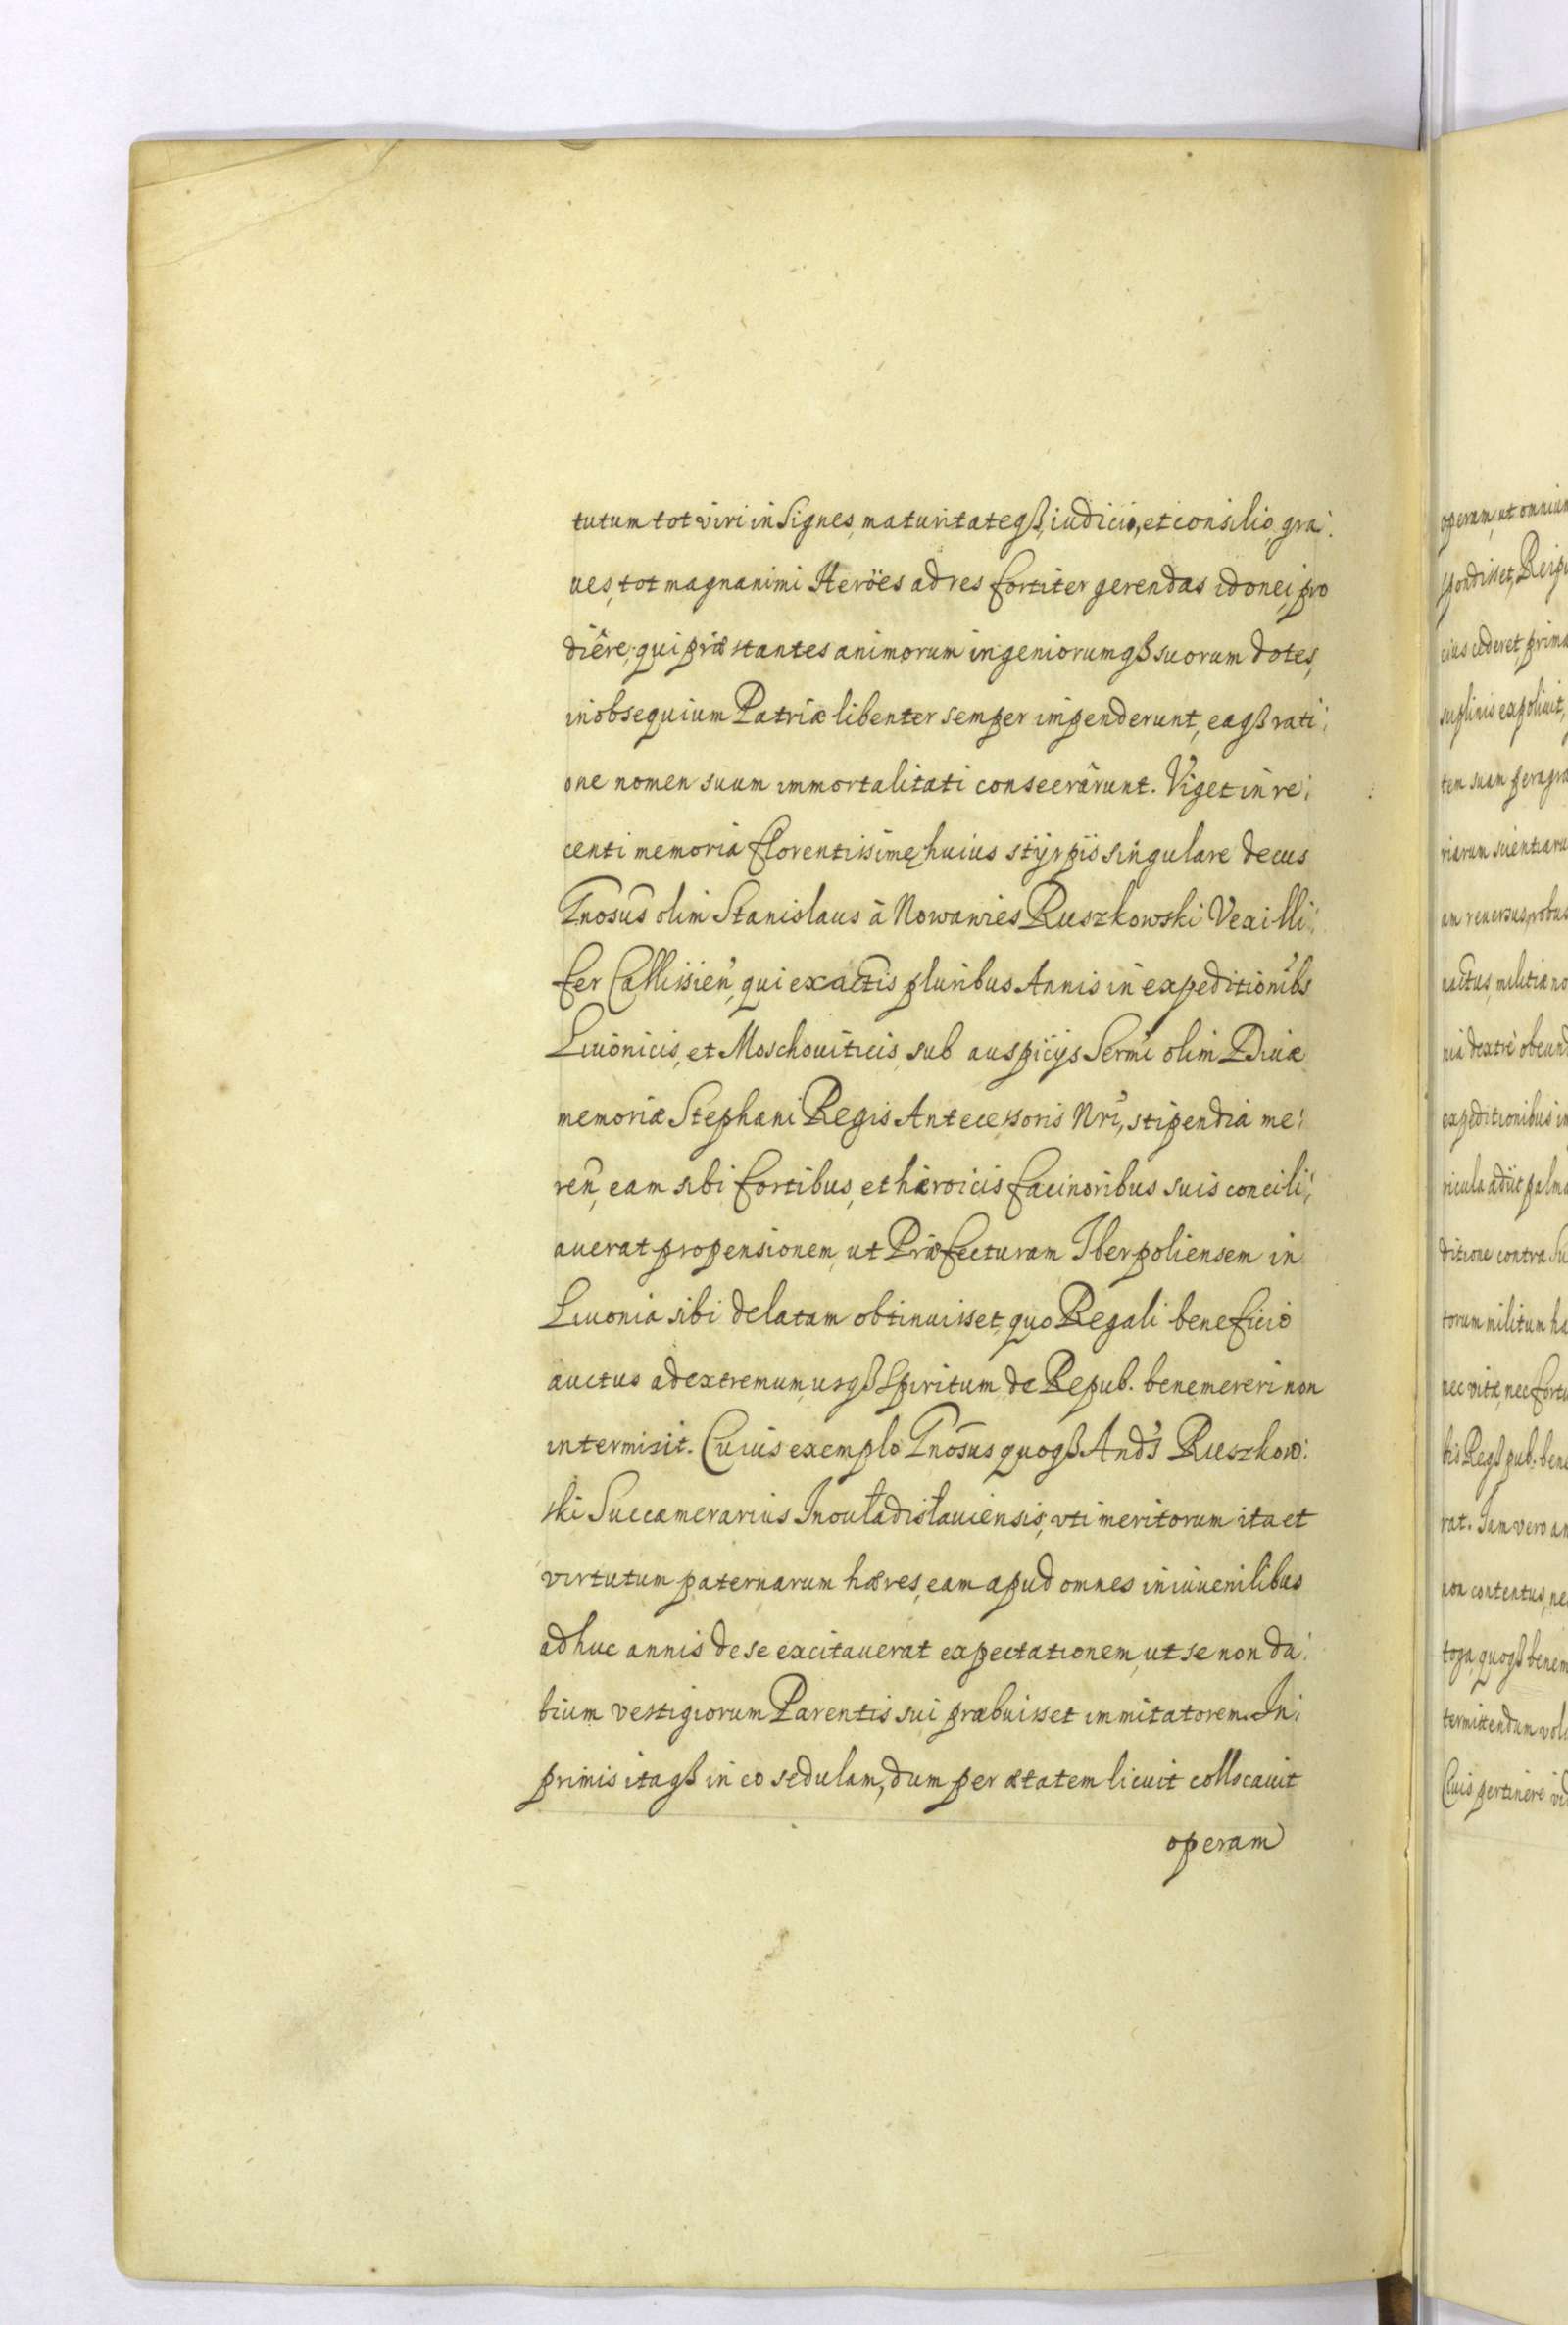 tutum tot viri insignes, maturitateqß, iudicio, et consilio, gra:
ues, tot magnanimi Heröes ad res fortiter gerendas idonei, pro
diêre, qui præstantes animorum ingeniorumqß suorum dotes,
in obsequium Patriæ libenter semper impenderunt, eaqß rati:
one nomen suum immortalitati consecrârunt. Viget in re:
centi memoria florentissimę huius styrpis singulare decus
Gnosus olim Stanislaus à Nowawies Ruszkowski Vexilli:
fer Callissien, qui exactis pluribus Annis in expeditionibs
Liuonicis, et Moschouiticis, sub auspicijs Sermi olim Diuæ
memoriæ Stephani Regis Antecessoris Nri, stipendia me:
ren, eam sibi fortibus, et hæroicis facinoribus suis concili:
auerat propensionem, ut Præfecturam Iberpoliensem in
Liuonia sibi delatam obtinuisset, quo Regali beneficio
auctus ad extremum, usqß Spiritum de Repub. benemereri non
intermisit. Cuius exemplo Gnosus quoqß Ands Ruszkow:
ski Succamerarius Inouładisłauiensis, vti meritorum ita et
virtutum paternarum hæres, eam apud omnes in iuuenilibus
adhuc annis de se excitauerat expectationem, ut se non du:
bium vestigiorum Parentis sui præbuisset immitatorem. In:
primis itaqß in eo sedulam, dum per ætatem licuit collocauit
operam
operam, ut omnium
spondisset, Reipu
eius cederet prima
expoliuit,
tem suam peragra
riarum scientiaru
am reuersus, probus
nactus, militiæ no
nia dextrè obeund
expeditionibus in
ricula adiit palma
ditione contra Su
torum militum ha
nec vitæ, nec fortu
bis Reqß pub. bene
rat. Iam vero an
non contentus, ne
toga, quoqß benem
termittendum volu
Ciuis pertinere vid